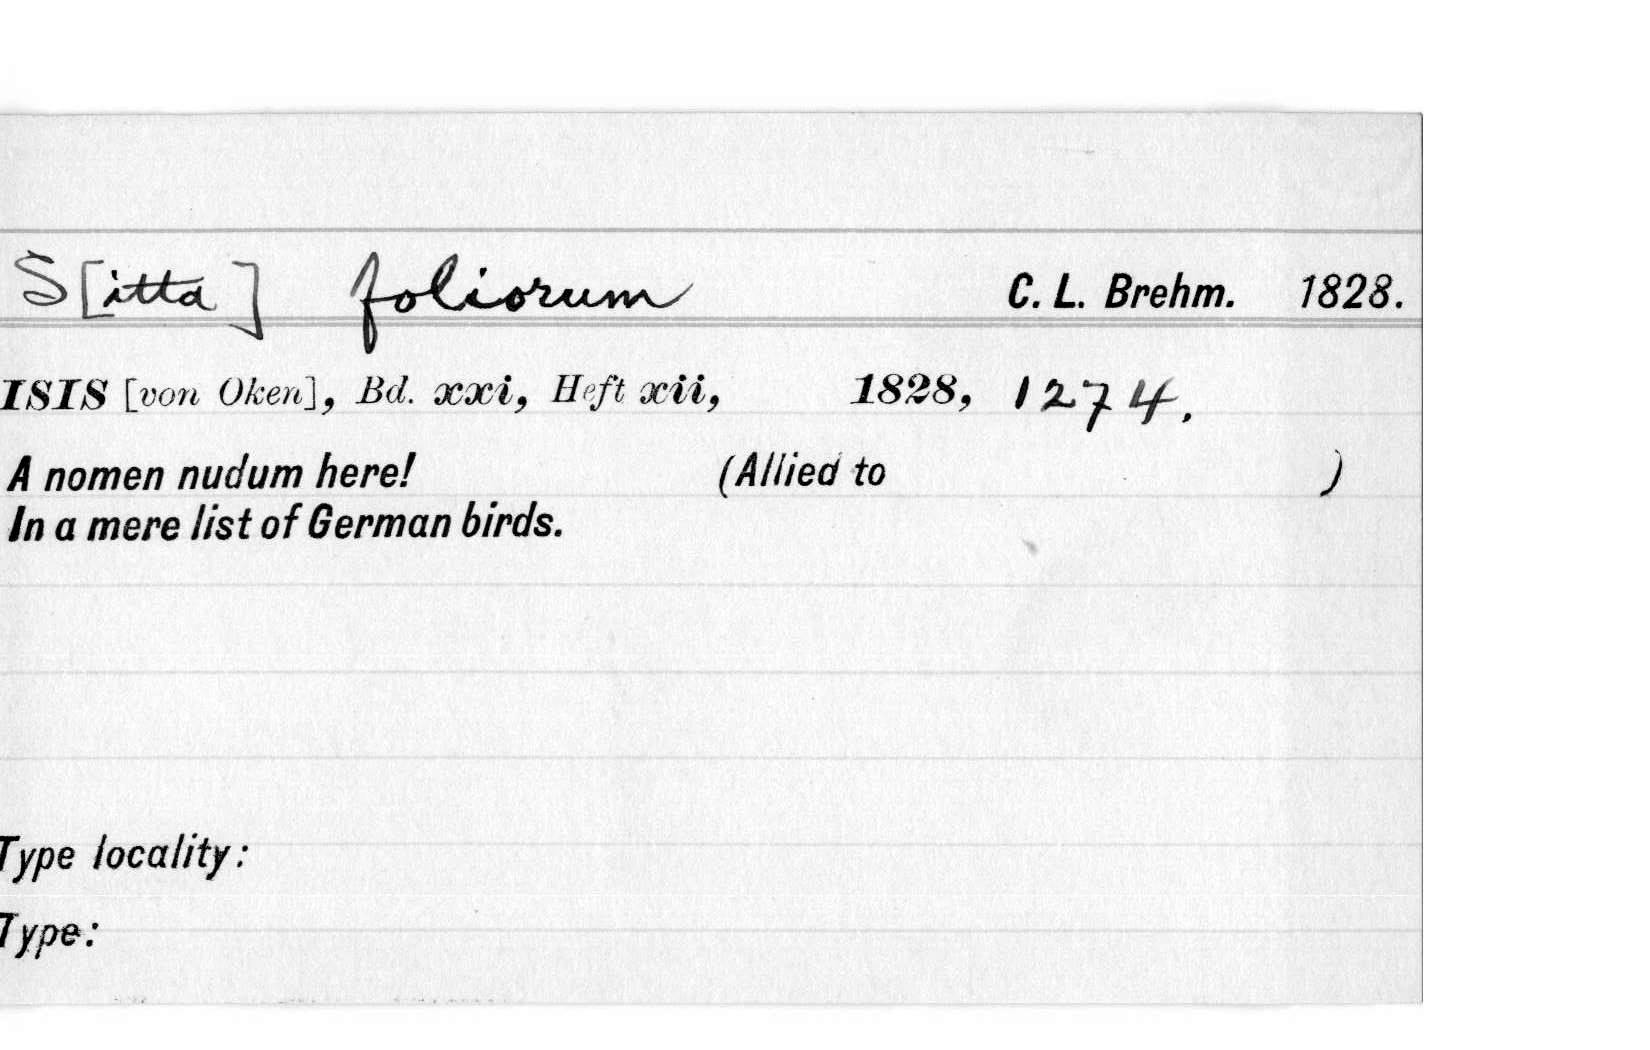 S[itta] foliorum C. L. Brehm. 1828.
ISIS [von Oken], Bd. xxi, Heft xii, 1828, 1274.
A nomen nudum here! (Allied to )
In a mere list of German birds.
Type locality:
Type: